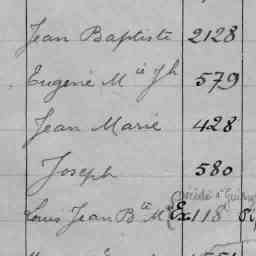 Jean Baptiste 2128
Eugène M ie Jh 579
Jean Marie 428
Joseph 580
décédé à
Louis Jean B te M Ex 118